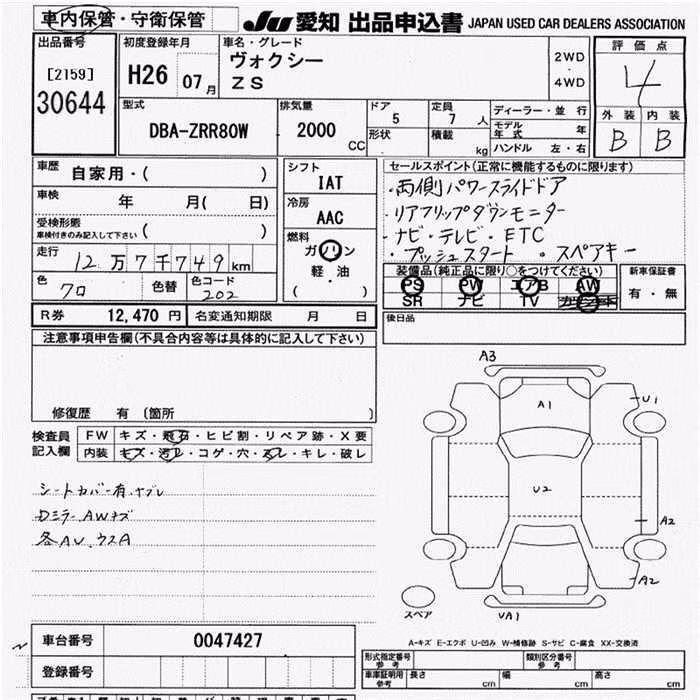 車内保管・守衛保管
JU 愛知 出品申込書 JAPAN USED CAR DEALERS ASSOCIATION
出品番号
[2159]
30644
初度登録年月
H26 07月
車名・グレード
ヴォクシー
ZS
2WD
・
4WD
評価点
4
外装 内装
B B
型式
DBA-ZRR80W
排気量
2000 CC
ドア
5
形状
定員
7 人
積載 kg
ディーラー・並行
モデル年式 年
ハンドル 左・右
車歴
自家用・( )
車検
年 月( 日)
受検形態
車検付きのみ記入して下さい ( )
走行
12万7千749km
色
クロ
色替
色コード
202
シフト
IAT
冷房
AAC
燃料
ガソリン
軽・油
( )
セールスポイント(正常に機能するものに限ります)
・両側パワースライドドア
・リアフリップダウンモニター
・ナビ・テレビ・ETC
・プッシュスタート ・スペアキー
装備品(純正品に限り○をつけてください)
PS PW エアB AW
SR ナビ TV
新車保証書
有・無
R券 12,470 円
名変通知期限 月 日
後日品
注意事項申告欄(不具合内容等は具体的に記入して下さい)
修復歴 有 (箇所 )
検査員
記入欄
FW キズ・飛石・ヒビ割・リペア跡・X要
内装 キズ・汚レ・コゲ・穴・スレ・キレ・破レ
シートカバー有.ヤブレ
Dミラー.AWキズ
各AU.ウスA
A3
A1
U1
U2
A2
A2
スペア
UA1
A-キズ E-エクボ U-凹み W-補修跡 S-サビ C-腐食 XX-交換済
車台番号
0047427
登録番号
形式指定番号
参考
類別区分番号
参考
車庫証明用
参考
長さ cm
幅 cm
高さ cm